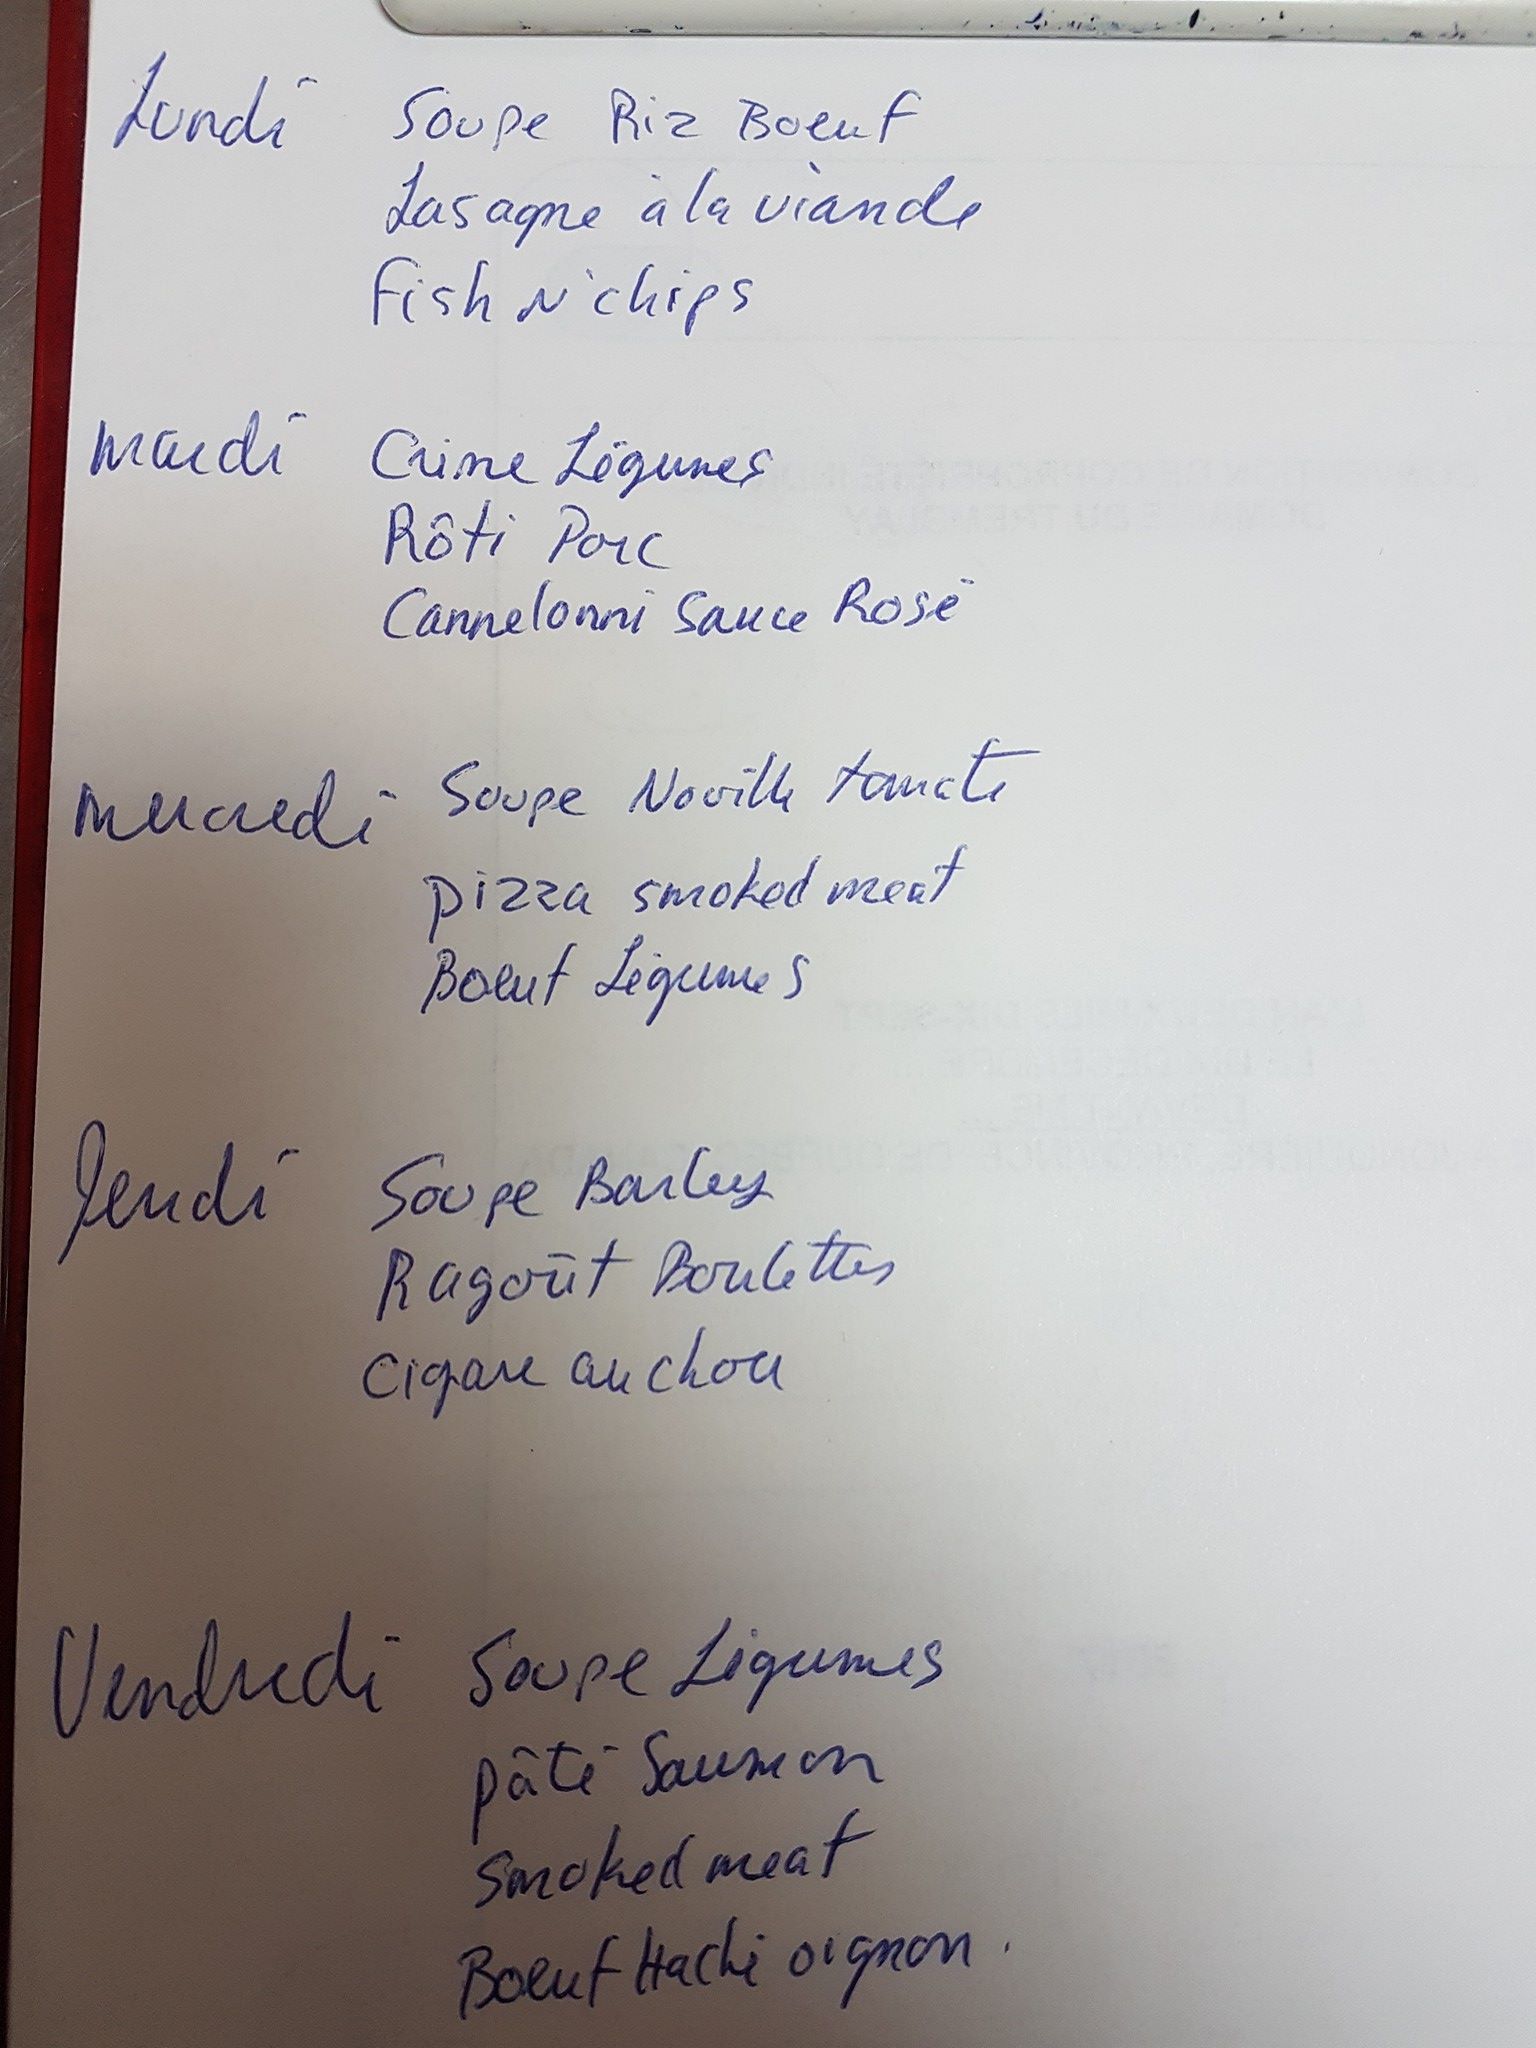 Lundi Soupe Riz Boeuf
Lasagne à la viande
Fish N'chips
Mardi Crème Légumes
Rôti Porc
Cannelonni Sauce Rosé
Mercredi Soupe Nouille tomate
pizza smoked meat
Boeuf Légumes
Jeudi Soupe Barley
Ragoût Boulettes
Cigare au chou
Vendredi Soupe Légumes
pâté Saumon
Smoked meat
Boeuf Haché oignon.